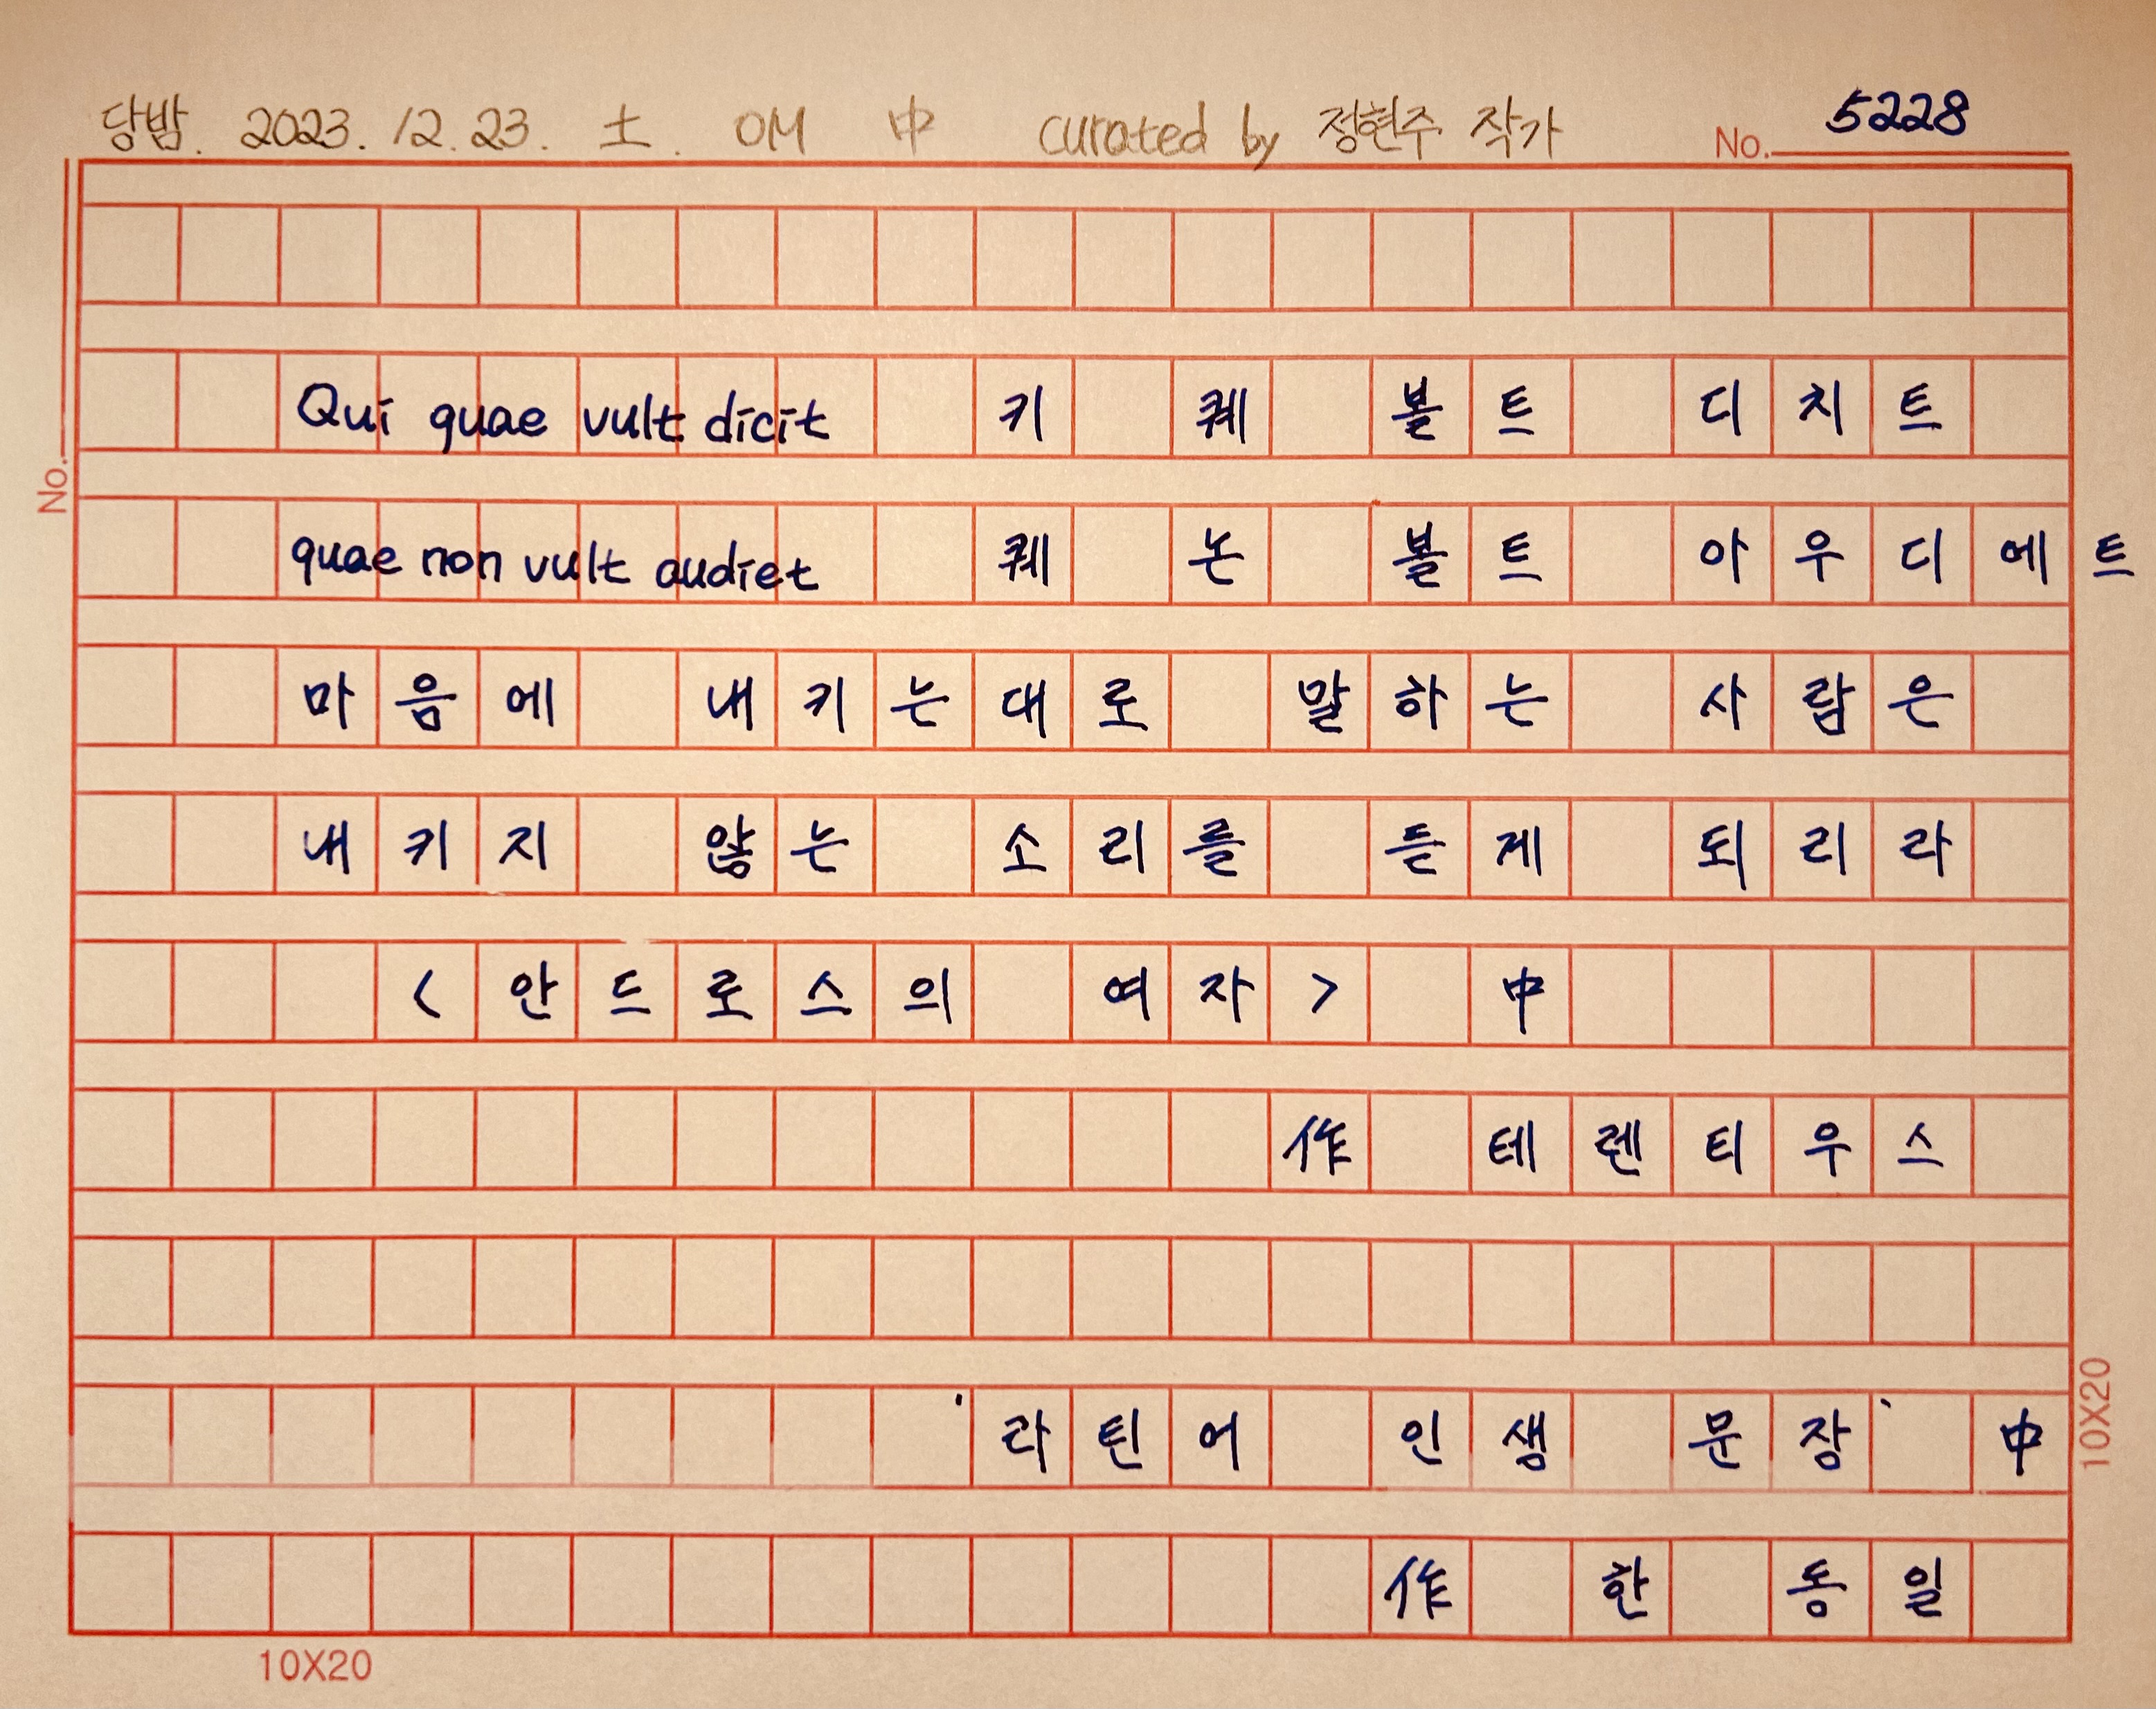 당밤. 2023. 12. 23. 土. OM 中 curated by 정현주 작가 No. 5228
Qui quae vult dicit 키 퀘 볼트 디치트
No.
quae non vult audiet 퀘 논 볼트 아우디에트
마음에 내키는대로 말하는 사람은
내키지 않는 소리를 듣게 되리라
<안드로스의 여자> 中
作 테렌티우스
'라틴어 인생 문장' 中
10X20
作 한 동일
10X20